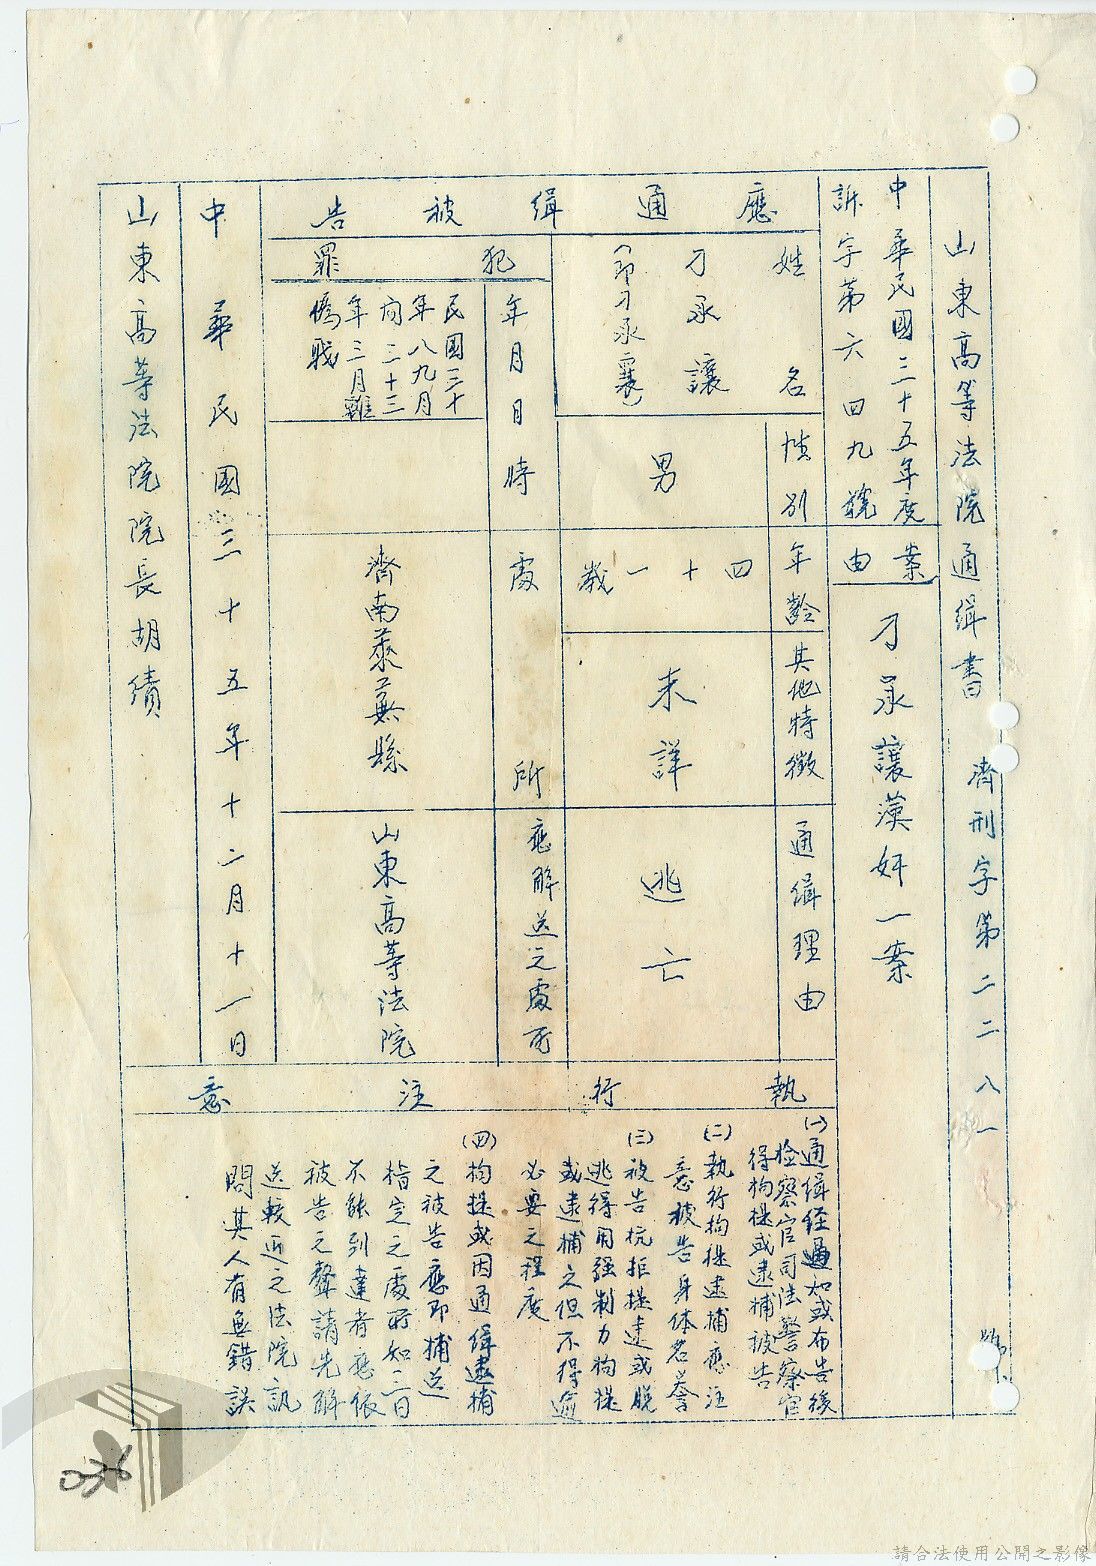 山東高等法院通緝書
濟刑字第二二八一號
中華民國三十五年度
訴字第六四九號
案由
刁承讓漢奸一案
應通緝被告
姓名
刁承讓
(即刁承襄)
性別
男
年齡
四十一歲
其他特徵
未詳
通緝理由
逃亡
犯罪
年月日時
民國三十
年八九月
向三十三
年三月離
偽職
處所
濟南萊蕪縣
應解送之處所
山東高等法院
執行注意
(一)通緝經通知或布告後
檢察官司法警察官
得拘提或逮捕被告
(二)執行拘提逮捕應注
意被告身体名譽
(三)被告抗拒提逮或脫
逃得用強制力拘提
或逮捕之但不得逾
必要之程度
(四)拘提或因通緝逮捕
之被告應即捕送
指定之處所如三日
不能到達者應依
被告之聲請先解
送較近之法院訊
問其人有無錯誤
中華民國三十五年十二月十一日
山東高等法院院長胡績
036
請合法使用公開之影像